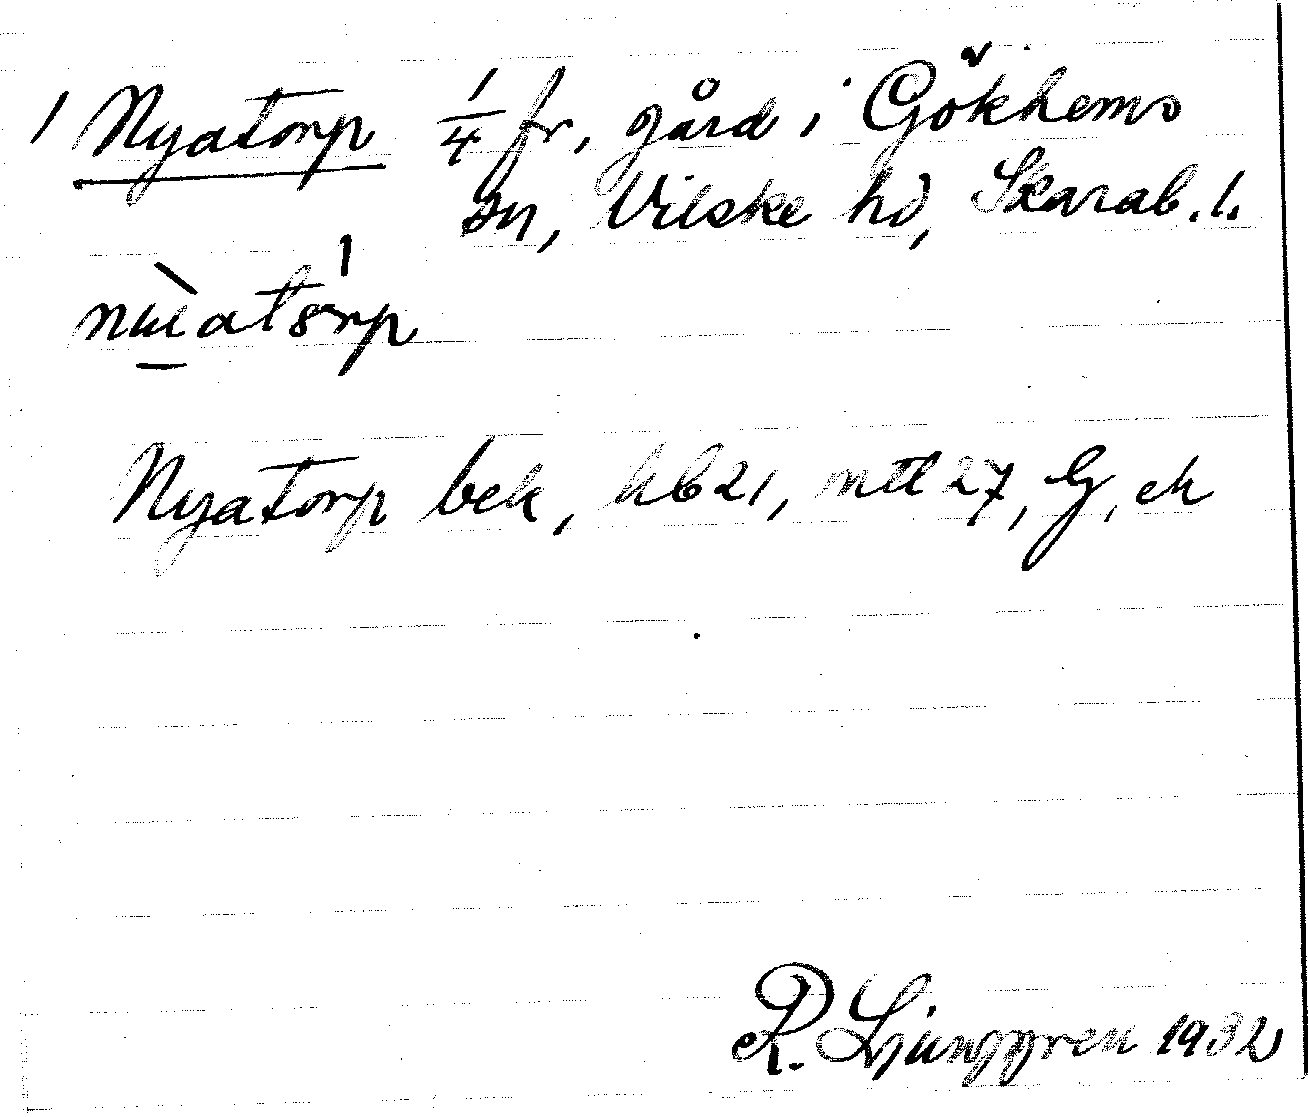 1 Nyatorp 1/4 fr, gård i Gökhems
sn, Vilske hd, Skarab. l.
Nyatorp bek, hb 21, mtl 27, G, ek
R. Ljunggren 1932